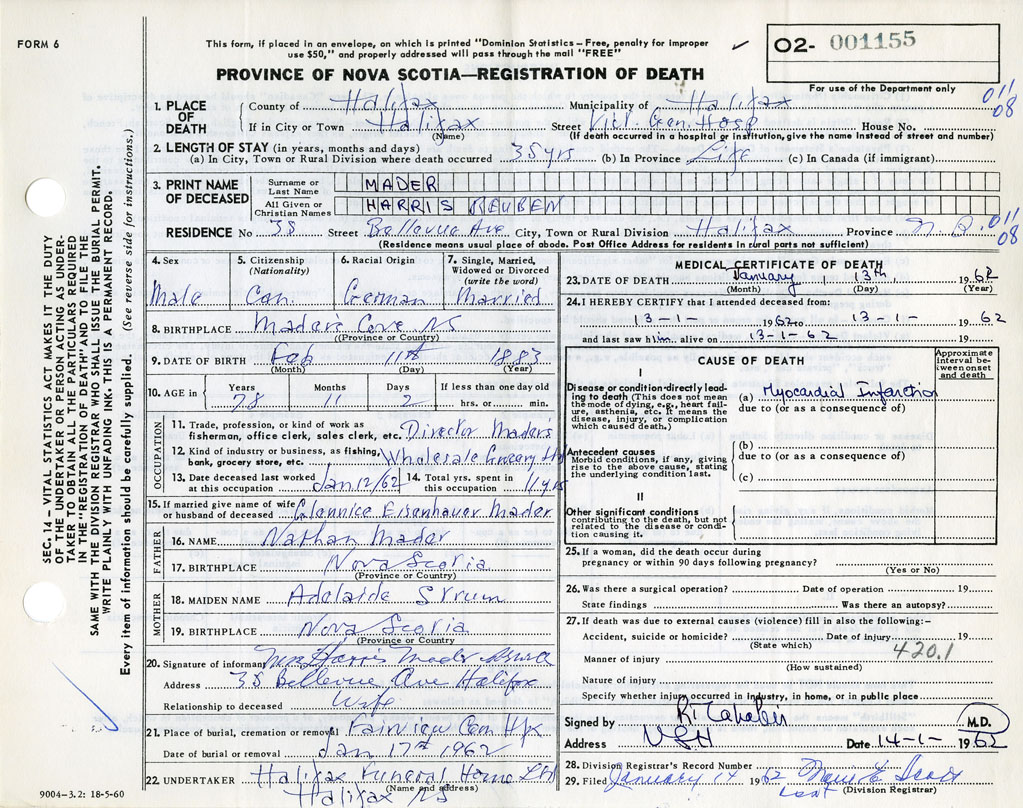 FORM 6
This form, if placed in an envelope, on which is printed "Dominion Statistics—Free, penalty for improper
use $50," and properly addressed will pass through the mail "FREE"
02- 001155
For use of the Department only
PROVINCE OF NOVA SCOTIA—REGISTRATION OF DEATH
011
08
1. PLACE OF DEATH County of Halifax Municipality of Halifax
If in City or Town Halifax Street Vict. Gen. Hosp House No.
(Name) (If death occurred in a hospital or institution, give the name instead of street and number)
2. LENGTH OF STAY (in years, months and days)
(a) In City, Town or Rural Division where death occurred 35 yrs (b) In Province Life (c) In Canada (if immigrant)
3. PRINT NAME OF DECEASED Surname or Last Name MADER
All Given or Christian Names HARRIS REUBEN
RESIDENCE No 38 Street Bellevue Ave City, Town or Rural Division Halifax Province N.S. 011
08
(Residence means usual place of abode. Post Office Address for residents in rural parts not sufficient)
4. Sex Male
5. Citizenship (Nationality) Can.
6. Racial Origin German
7. Single, Married, Widowed or Divorced (write the word) Married
8. BIRTHPLACE Maders Cove NS
(Province or Country)
9. DATE OF BIRTH Feb 11th 1883
(Month) (Day) (Year)
10. AGE in Years 78 Months 11 Days 2 If less than one day old hrs. or min.
OCCUPATION
11. Trade, profession, or kind of work as
fisherman, office clerk, sales clerk, etc. Director Mader's
12. Kind of industry or business, as fishing,
bank, grocery store, etc. Wholesale Grocery Ltd
13. Date deceased last worked at this occupation Jan 12/62 14. Total yrs. spent in this occupation 11 yrs
15. If married give name of wife or husband of deceased Glennice Eisenhauer Mader
FATHER
16. NAME Nathan Mader
17. BIRTHPLACE Nova Scotia
(Province or Country)
MOTHER
18. MAIDEN NAME Adelaide Strum
19. BIRTHPLACE Nova Scotia
(Province or Country)
20. Signature of informant Mrs Harris Mader
Address 38 Bellevue Ave Halifax
Relationship to deceased Wife
21. Place of burial, cremation or removal Fairview Cem Hfx
Date of burial or removal Jan 17th 1962
22. UNDERTAKER Halifax Funeral Home Ltd
(Name and address)
Halifax NS
9004-3.2: 18-5-60
MEDICAL CERTIFICATE OF DEATH
23. DATE OF DEATH January 13th 1962
(Month) (Day) (Year)
24. I HEREBY CERTIFY that I attended deceased from:
13-1- 1962 to 13-1- 1962
and last saw him alive on 13-1-62 19
CAUSE OF DEATH
Approximate interval between onset and death
I
Disease or condition directly leading to death (This does not mean the mode of dying, e.g., heart failure, asthenia, etc. It means the disease, injury, or complication which caused death.)
(a) Myocardial Infarction
due to (or as a consequence of)
Antecedent causes
Morbid conditions, if any, giving rise to the above cause, stating the underlying condition last.
(b)
due to (or as a consequence of)
(c)
II
Other significant conditions
contributing to the death, but not related to the disease or condition causing it.
25. If a woman, did the death occur during
pregnancy or within 90 days following pregnancy?
(Yes or No)
26. Was there a surgical operation? Date of operation 19
State findings Was there an autopsy?
27. If death was due to external causes (violence) fill in also the following:-
Accident, suicide or homicide? Date of injury 19
(State which)
420.1
Manner of injury
(How sustained)
Nature of injury
Specify whether injury occurred in industry, in home, or in public place
Signed by M.D.
Address VGH Date 14-1- 1962
28. Division Registrar's Record Number
29. Filed January 14 1962
(Division Registrar)
SEC. 14 — VITAL STATISTICS ACT MAKES IT THE DUTY
OF THE UNDERTAKER OR PERSON ACTING AS UNDER-
TAKER TO OBTAIN ALL THE PARTICULARS REQUIRED
IN THE "REGISTRATION OF DEATH" AND TO FILE THE
SAME WITH THE DIVISION REGISTRAR WHO SHALL ISSUE THE BURIAL PERMIT.
WRITE PLAINLY WITH UNFADING INK. THIS IS A PERMANENT RECORD.
Every item of information should be carefully supplied. (See reverse side for instructions.)